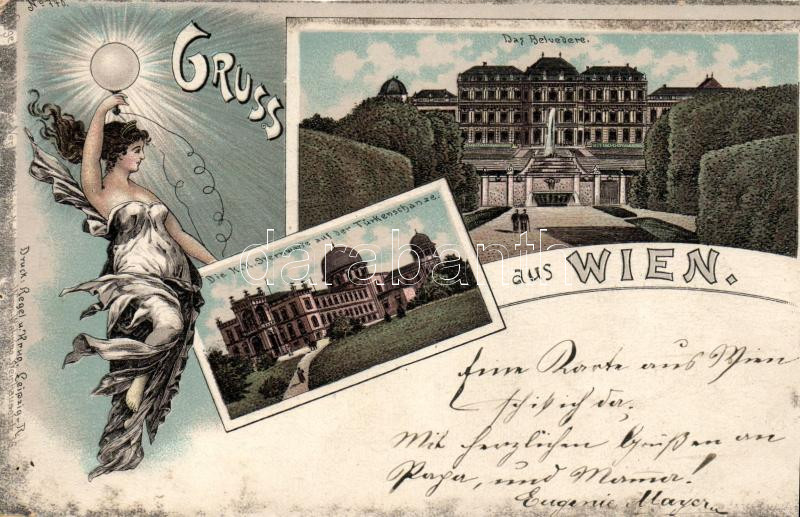 No 778.
GRUSS
Das Belvedere.
Die K.K. Sternwarte auf der Türkenschanze.
aus WIEN.
Druck Regel u. Krug, Leipzig-R.
darabanth.com
Eine Karte aus Wien
schik ich da.
Mit herzlichen Grüßen an
Papa, und Mama!
Eugenie Mayer